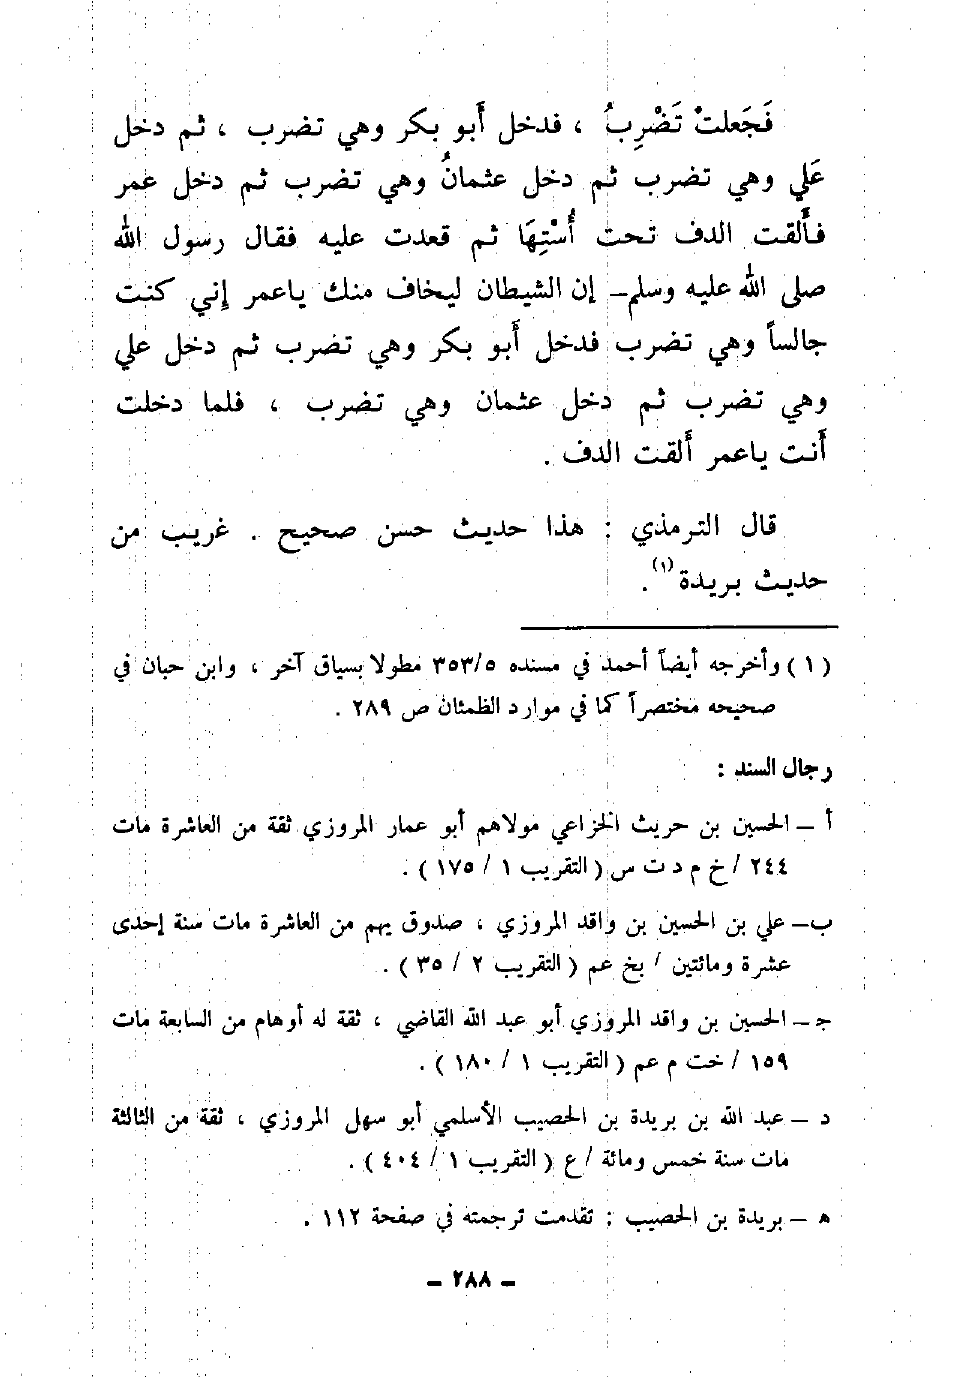 فَجَعلتْ تَضْرِبُ ، فدخل أَبو بكر وهي تضرب ، ثم دخل
عَلي وهي تضرب ثم دخل عثمانُ وهي تضرب ثم دخل عمر
فأَلقت الدف تحت أُسْتِهَا ثم قعدت عليه فقال رسول الله
صلى الله عليه وسلم– إن الشيطان ليخاف منك ياعمر إني كنت
جالساً وهي تضرب فدخل أَبو بكر وهي تضرب ثم دخل علي
وهي تضرب ثم دخل عثمان وهي تضرب ، فلما دخلت
أَنت ياعمر أَلقت الدف .
قال الترمذي : هذا حديث حسن صحيح . غريب من
حديث بريدة (١) .
(١) وأخرجه أيضاً أحمد في مسنده ٣٥٣/٥ مطولا بسياق آخر ، وابن حبان في
صحيحه مختصراً كما في موارد الظمئان ص ٢٨٩ .
رجال السند :
أ – الحسين بن حريث الخزاعي مولاهم أبو عمار المروزي ثقة من العاشرة مات
٢٤٤ / خ م د ت س ( التقريب ١ / ١٧٥ ) .
ب– علي بن الحسين بن واقد المروزي ، صدوق يهم من العاشرة مات سنة إحدى
عشرة ومائتين / بخ عم ( التقريب ٢ / ٣٥ ) .
جـ – الحسين بن واقد المروزي أبو عبد الله القاضي ، ثقة له أوهام من السابعة مات
١٥٩ / خت م عم ( التقريب ١ / ١٨٠ ) .
د – عبد الله بن بريدة بن الحصيب الأسلمي أبو سهل المروزي ، ثقة من الثالثة
مات سنة خمس ومائة / ع ( التقريب ١ / ٤٠٤ ) .
ه – بريدة بن الحصيب : تقدمت ترجمته في صفحة ١١٢ .
– ٢٨٨ –